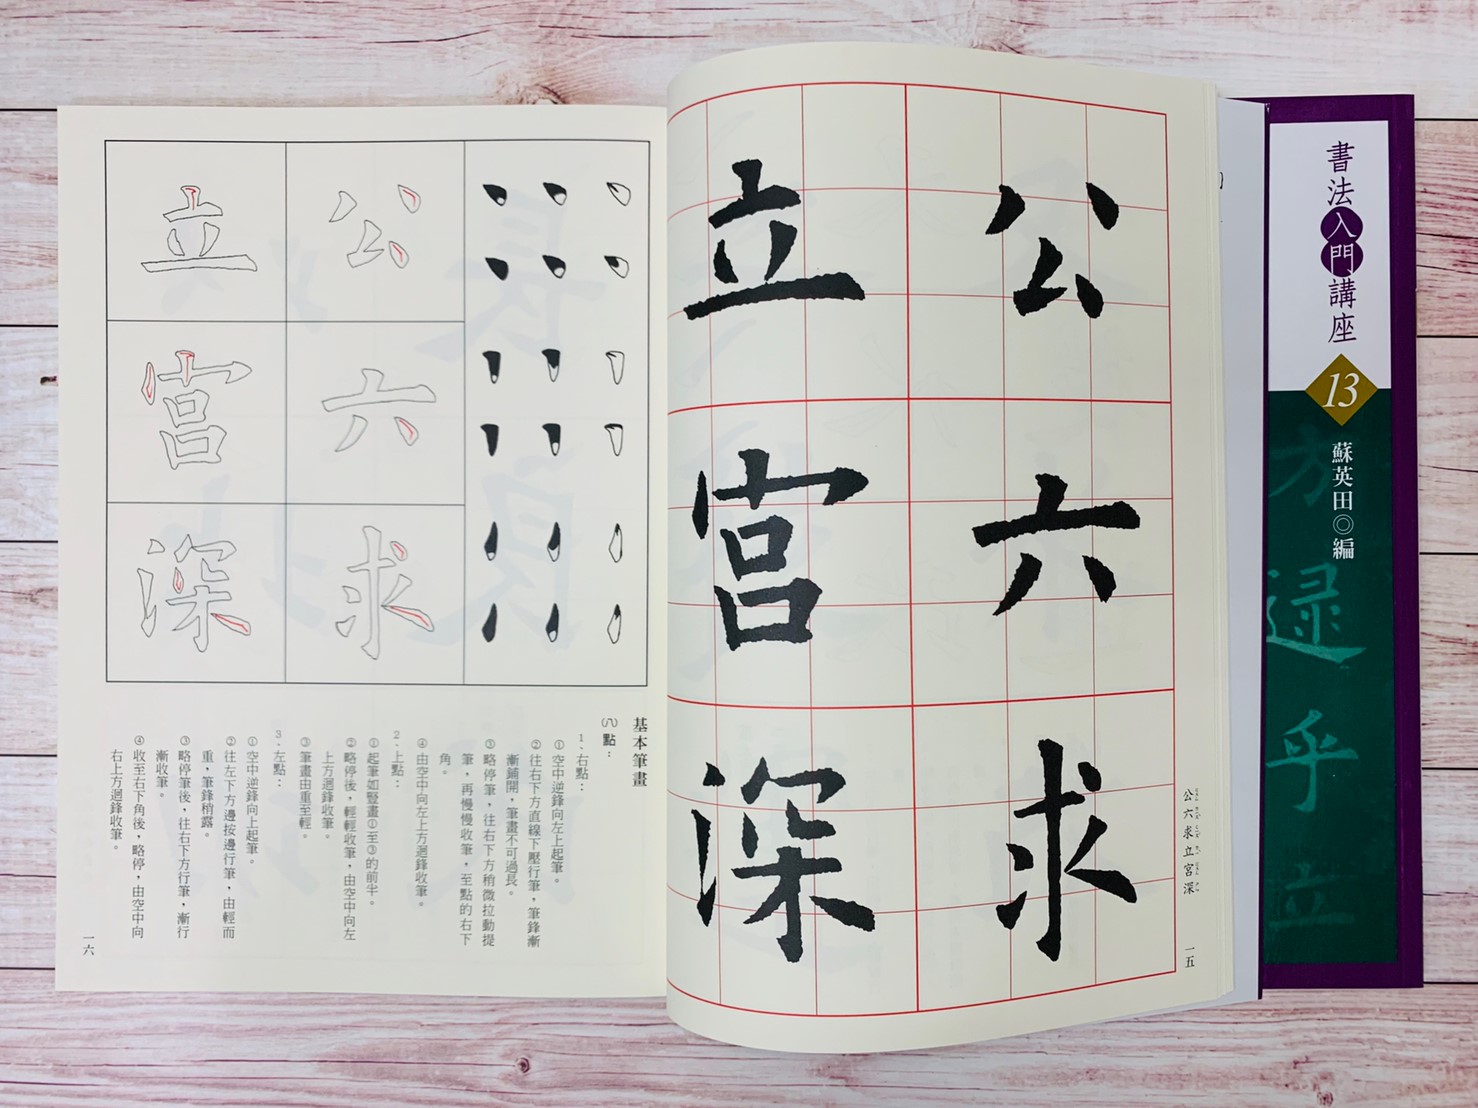 書法入門講座
13
蘇英田◎編
方
逯乎立
公六求
立宮深
公六求立宮深
一五
公六求
立宮深
基本筆畫
點：
1、右點：
①空中逆鋒向左上起筆。
②往右下方直線下壓行筆，筆鋒漸
漸鋪開，筆畫不可過長。
③略停筆，往右下方稍微拉動提
筆，再慢慢收筆，至點的右下
角。
④由空中向左上方迴鋒收筆。
2、上點：
①起筆如豎畫①至③的前半。
②略停後，輕輕收筆，由空中向左
上方迴鋒收筆。
③筆畫由重至輕。
3、左點：
①空中逆鋒向上起筆。
②往左下方邊按邊行筆，由輕而
重，筆鋒稍露。
③略停筆後，往右下方行筆，漸行
漸收筆。
④收至右下角後，略停，由空中向
右上方迴鋒收筆。
一六